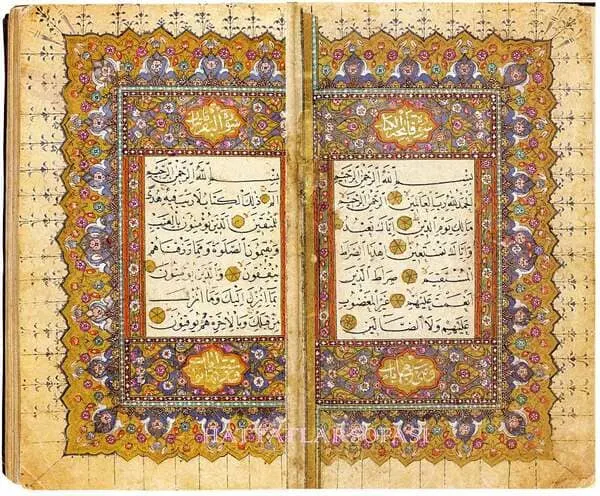 سورة فاتحة الكتاب
بسم الله الرحمن الرحيم
الحمد لله رب العالمين
ملك يوم الدين اياك نعبد
واياك نستعين اهدنا الصراط
المستقيم صراط الذين
انعمت عليهم غير المغضوب
عليهم ولا الضالين
سورة البقرة
بسم الله الرحمن الرحيم
الم ذلك الكتاب لا ريب فيه هدى
للمتقين الذين يؤمنون بالغيب
ويقيمون الصلوة ومما رزقناهم
ينفقون والذين يؤمنون
بما انزل اليك وما انزل
من قبلك وبالاخرة هم يوقنون
HATTATLAR SOFASI